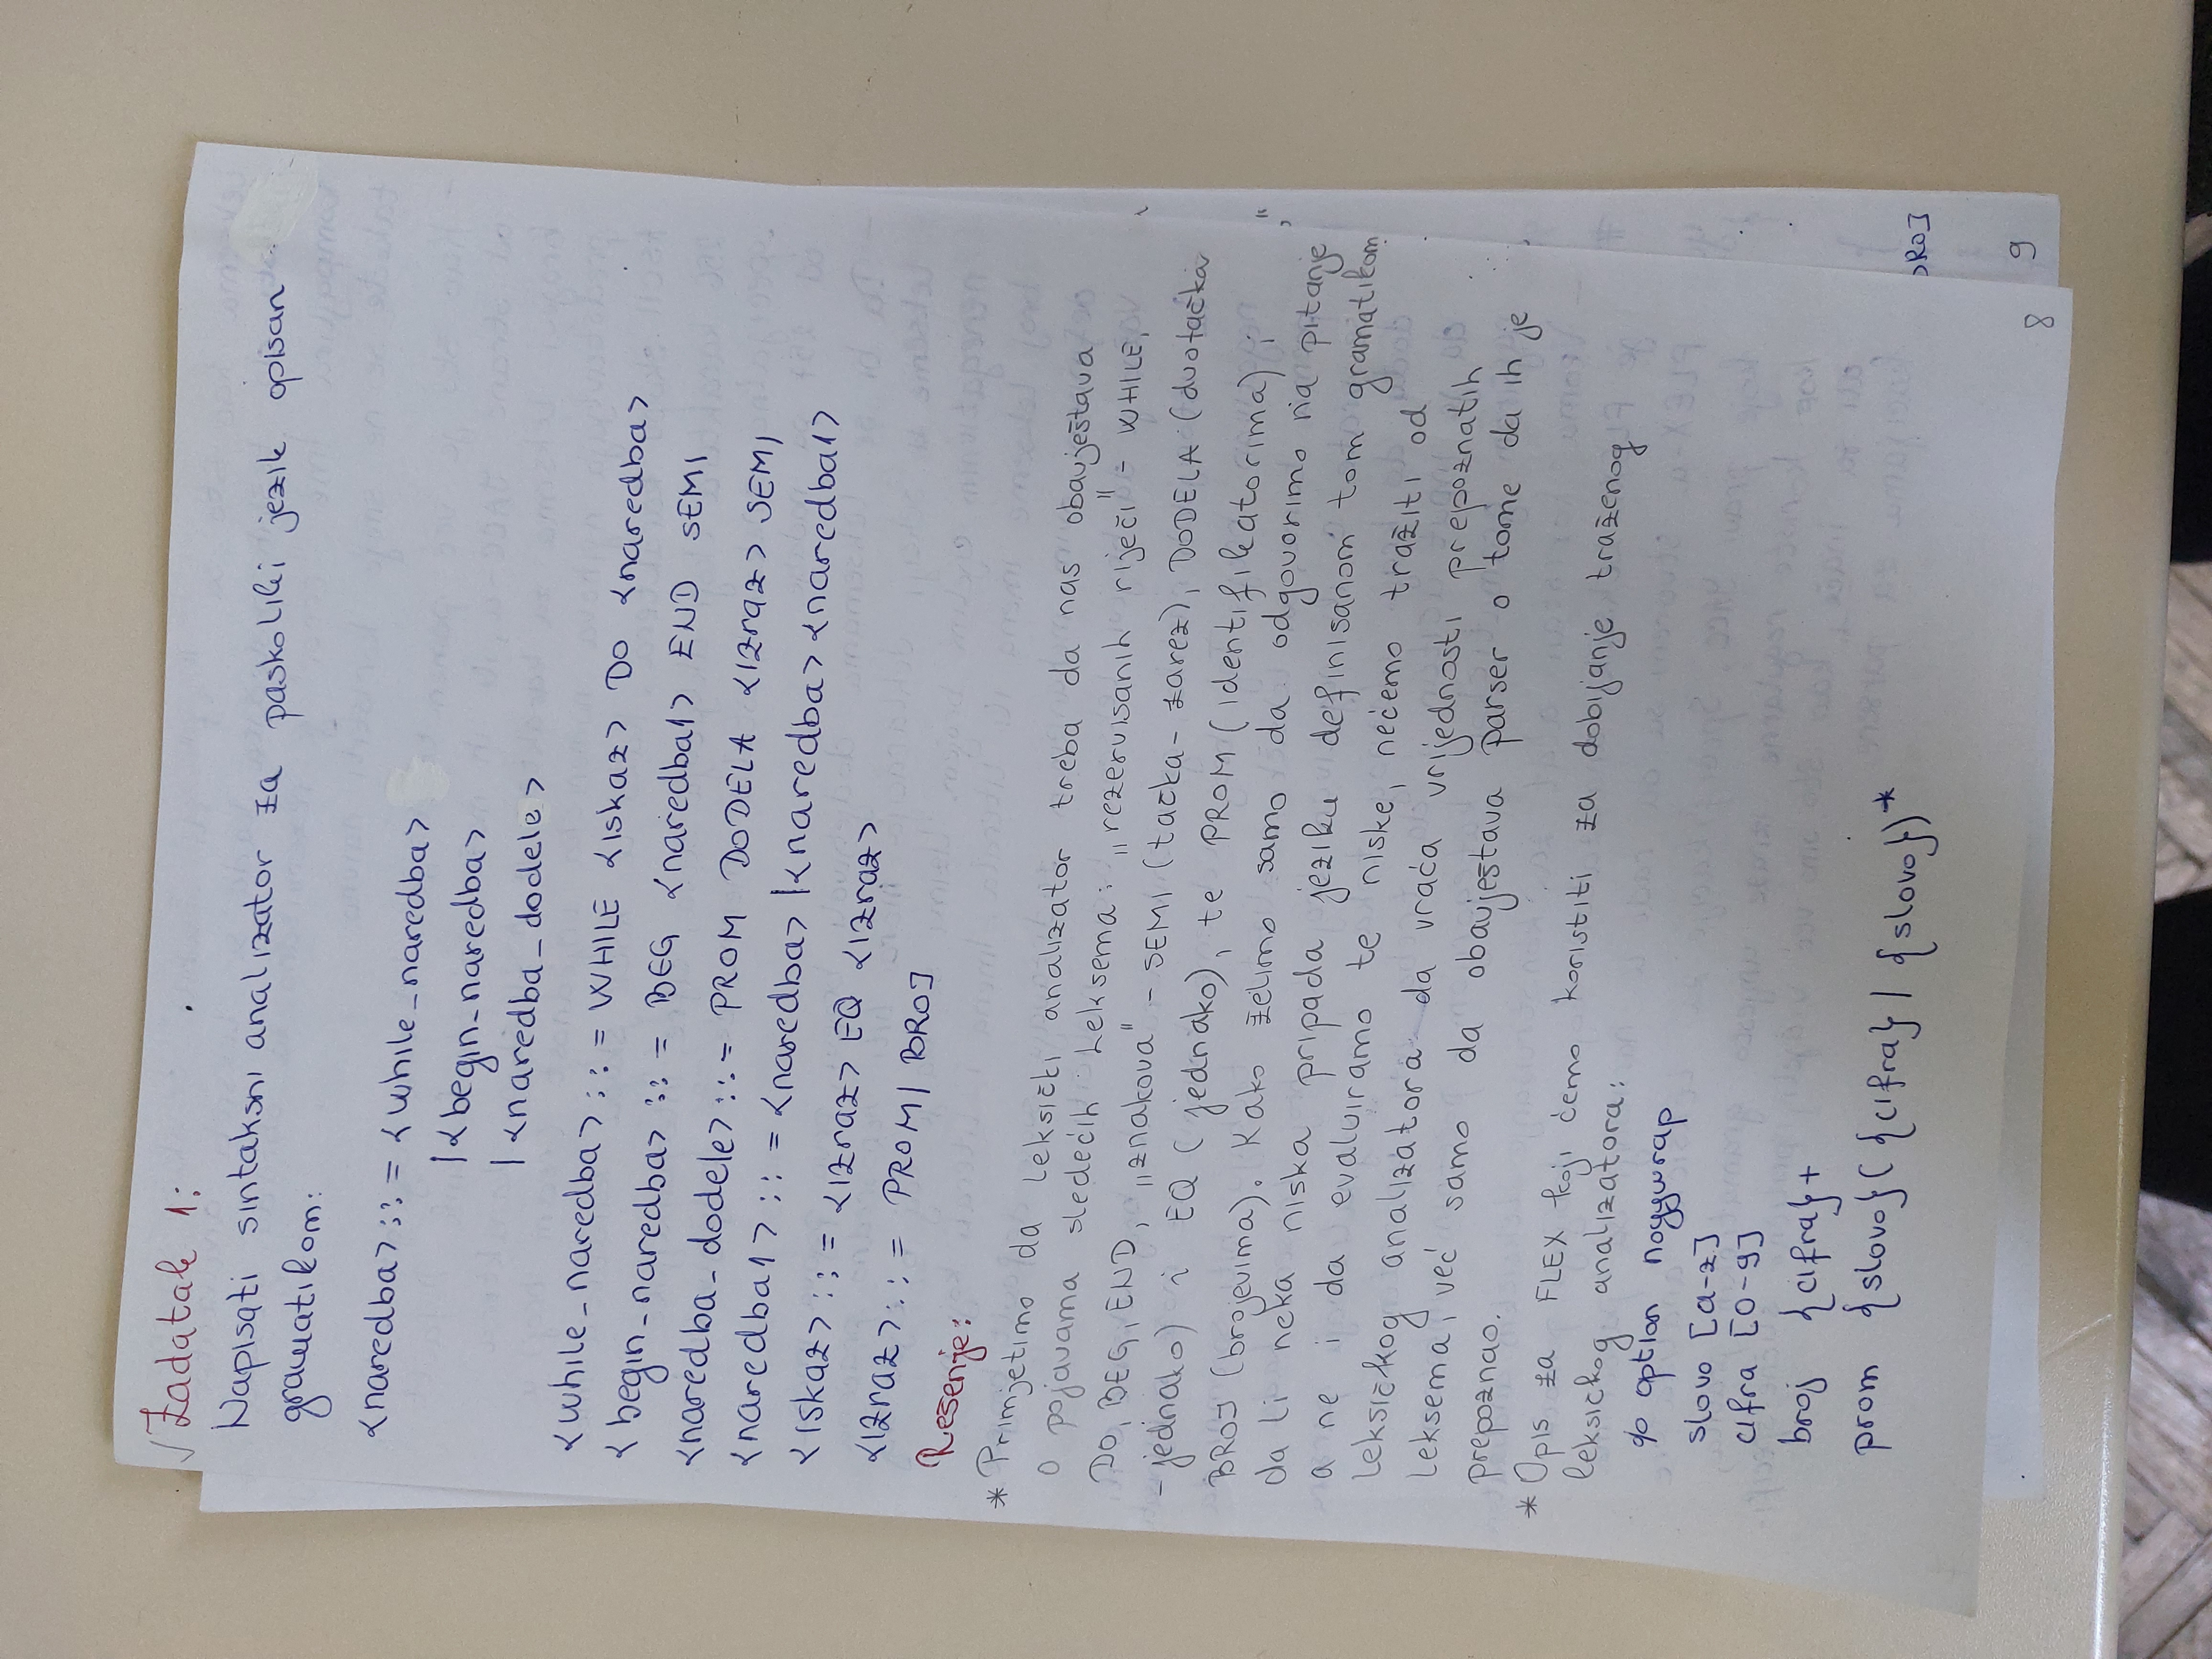 √ Zadatak 1:
Napisati sintaksni analizator za paskoliki jezik opisan
gramatikom:
<naredba> ::= <while_naredba>
|<begin_naredba>
|<naredba_dodele>
<while_naredba> ::= WHILE <iskaz> DO <naredba>
<begin_naredba> ::= BEG <naredba1> END SEMI
<naredba_dodele> ::= PROM DODELA <izraz> SEMI
<naredba1> ::= <naredba> |<naredba> <naredba1>
<iskaz> ::= <izraz> EQ <izraz>
<izraz> ::= PROM | BROJ
Rešenje:
* Primjetimo da leksički analizator treba da nas obavještava
o pojavama sledećih leksema: „rezervisanih riječi" - WHILE,
DO, BEG, END, „znakova" - SEMI (tačka-zarez), DODELA (dvotačka
-jednako) i EQ (jednako), te PROM (identifikatorima) i
BROJ (brojevima). Kako želimo samo da odgovorimo na pitanje
da li neka niska pripada jeziku definisanom tom gramatikom
a ne i da evaluiramo te niske, nećemo tražiti od
leksičkog analizatora da vraća vrijednosti prepoznatih
leksema, već samo da obavještava parser o tome da ih je
prepoznao.
* Opis za FLEX koji ćemo koristiti za dobijanje traženog
leksičkog analizatora:
% option noyywrap
slovo [a-z]
cifra [0-9]
broj {cifra}+
prom {slovo}({cifra} | {slovo})*
BROJ
8
9